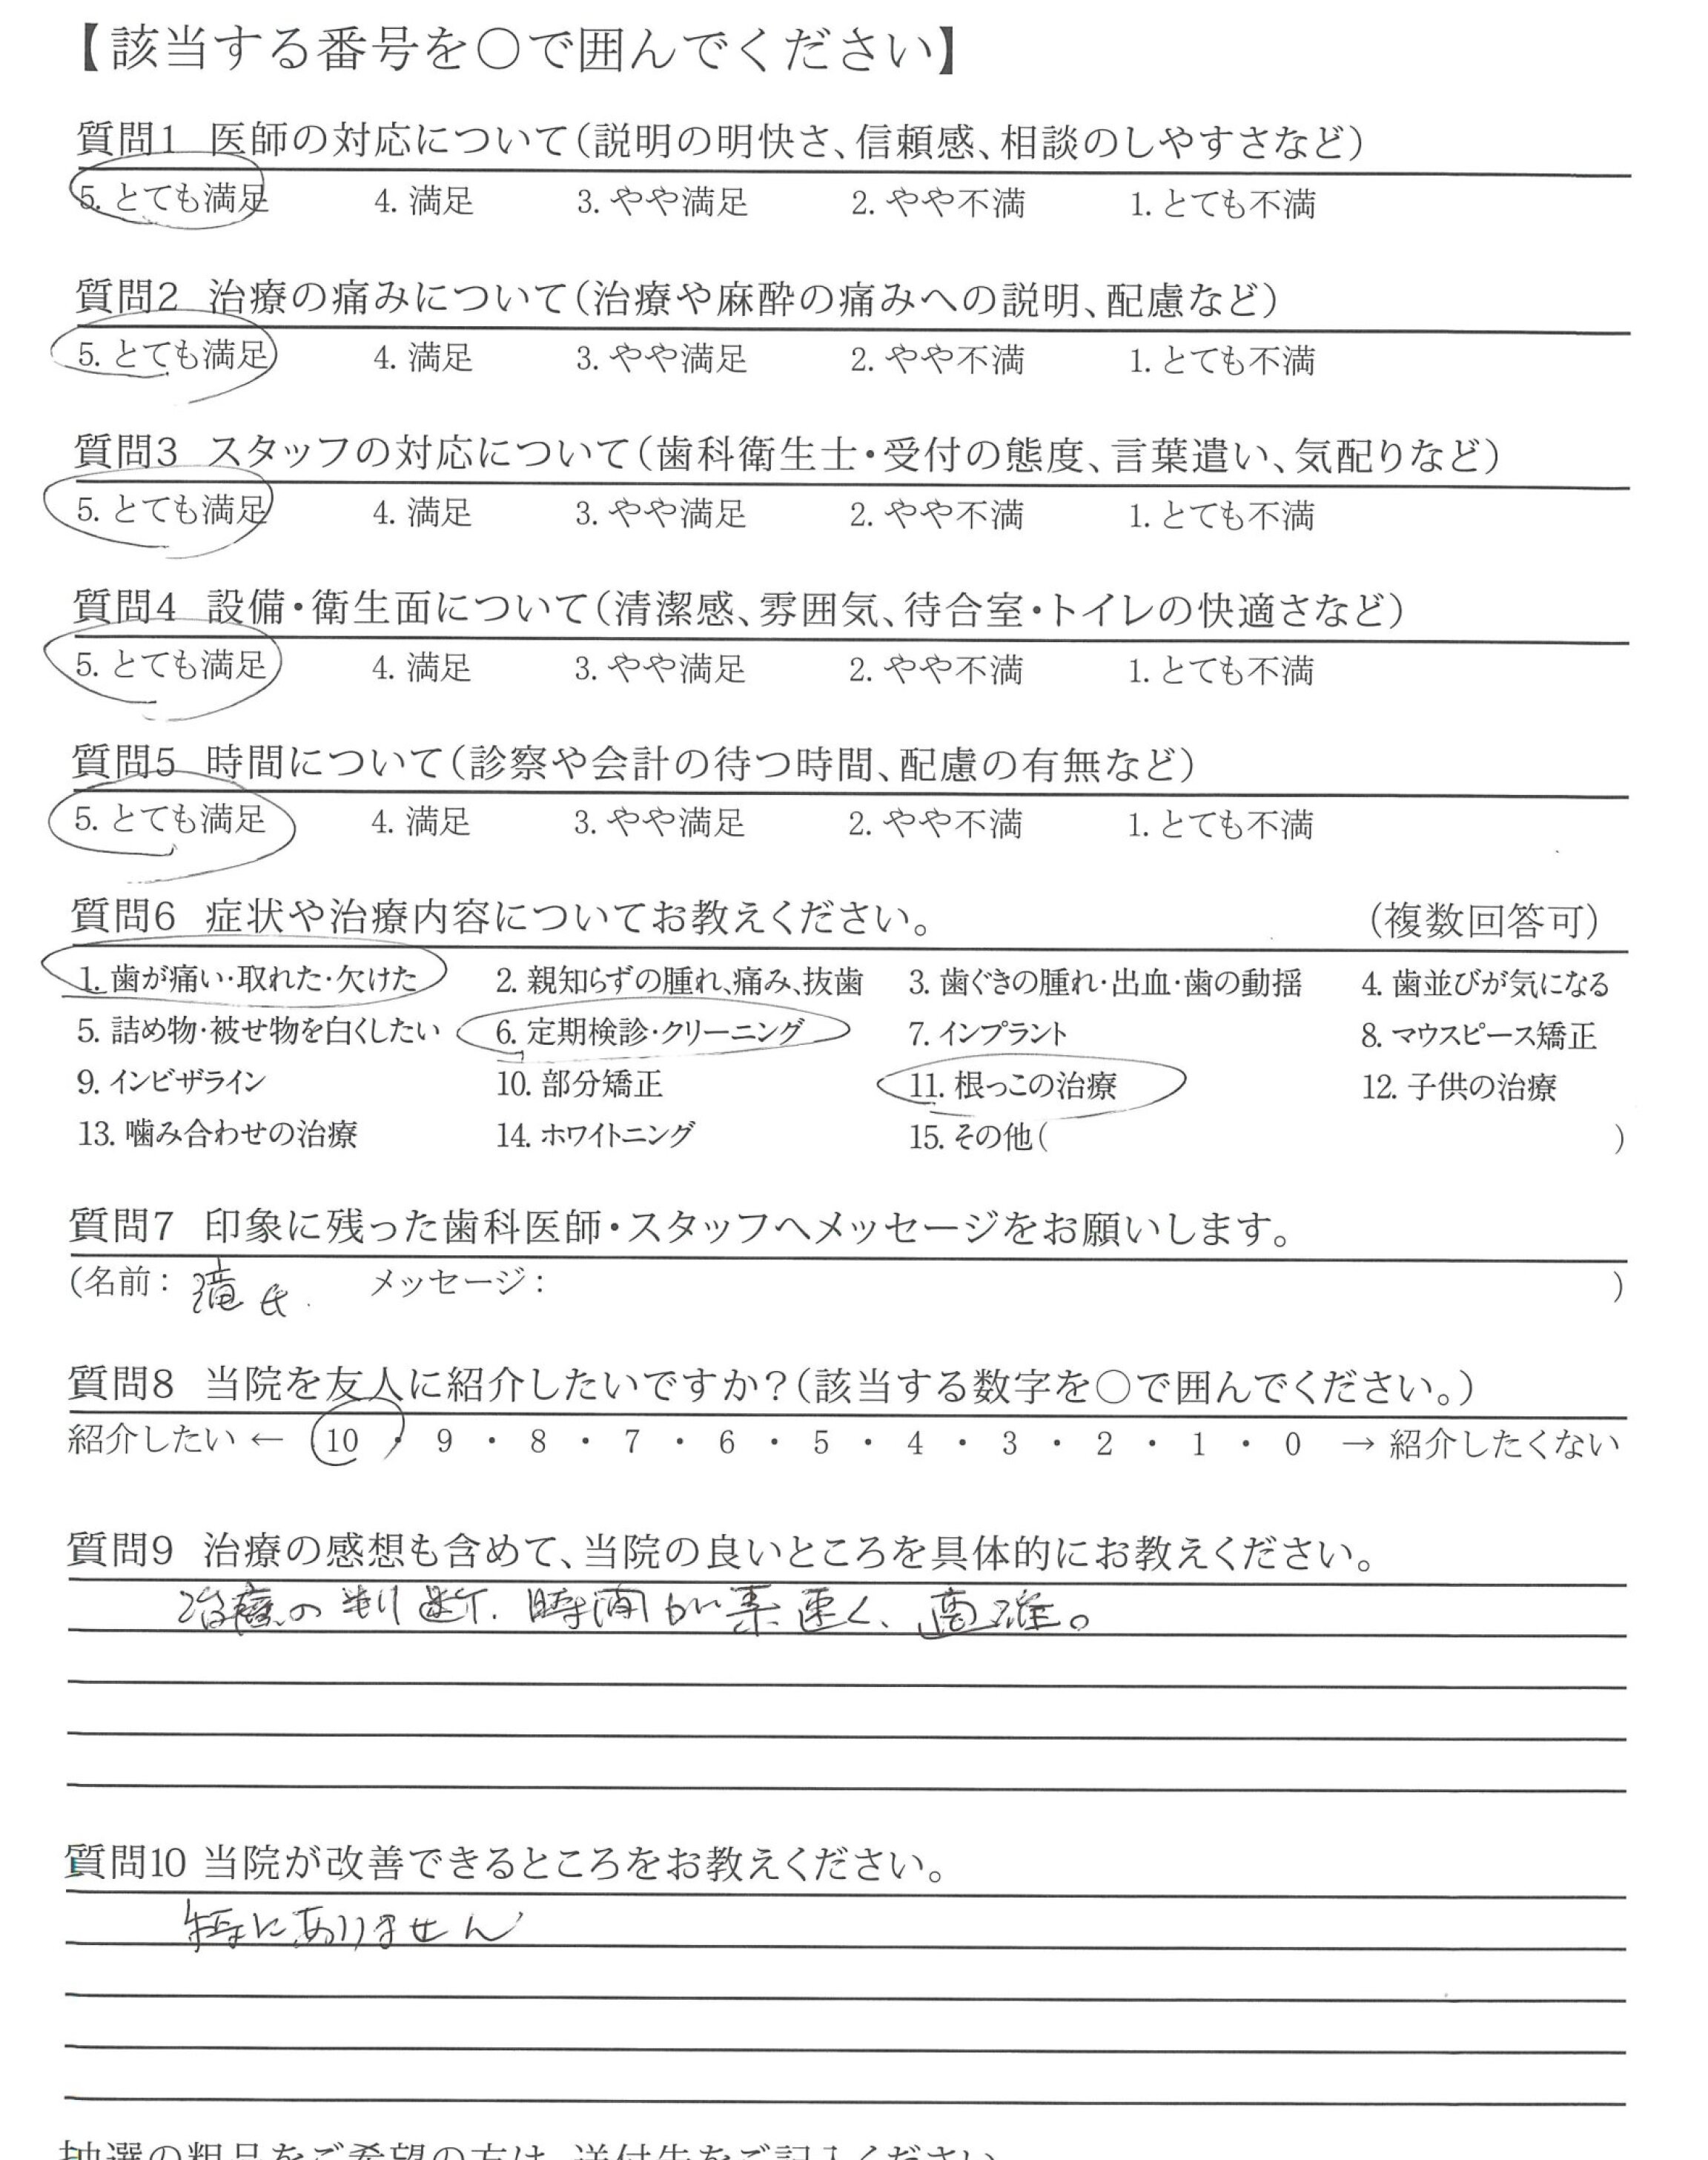 【該当する番号を○で囲んでください】
質問1 医師の対応について(説明の明快さ、信頼感、相談のしやすさなど)
5. とても満足 4. 満足 3. やや満足 2. やや不満 1. とても不満
質問2 治療の痛みについて(治療や麻酔の痛みへの説明、配慮など)
5. とても満足 4. 満足 3. やや満足 2. やや不満 1. とても不満
質問3 スタッフの対応について(歯科衛生士・受付の態度、言葉遣い、気配りなど)
5. とても満足 4. 満足 3. やや満足 2. やや不満 1. とても不満
質問4 設備・衛生面について(清潔感、雰囲気、待合室・トイレの快適さなど)
5. とても満足 4. 満足 3. やや満足 2. やや不満 1. とても不満
質問5 時間について(診察や会計の待つ時間、配慮の有無など)
5. とても満足 4. 満足 3. やや満足 2. やや不満 1. とても不満
質問6 症状や治療内容についてお教えください。 (複数回答可)
1. 歯が痛い・取れた・欠けた 2. 親知らずの腫れ、痛み、抜歯 3. 歯ぐきの腫れ・出血・歯の動揺 4. 歯並びが気になる
5. 詰め物・被せ物を白くしたい 6. 定期検診・クリーニング 7. インプラント 8. マウスピース矯正
9. インビザライン 10. 部分矯正 11. 根っこの治療 12. 子供の治療
13. 噛み合わせの治療 14. ホワイトニング 15. その他( )
質問7 印象に残った歯科医師・スタッフへメッセージをお願いします。
(名前: 滝氏 メッセージ: )
質問8 当院を友人に紹介したいですか?(該当する数字を○で囲んでください。)
紹介したい ← 10 ・ 9 ・ 8 ・ 7 ・ 6 ・ 5 ・ 4 ・ 3 ・ 2 ・ 1 ・ 0 → 紹介したくない
質問9 治療の感想も含めて、当院の良いところを具体的にお教えください。
治療の判断、時間が素速く、適確。
質問10 当院が改善できるところをお教えください。
特にありません
抽選の粗品をご希望の方は、送付先をご記入ください